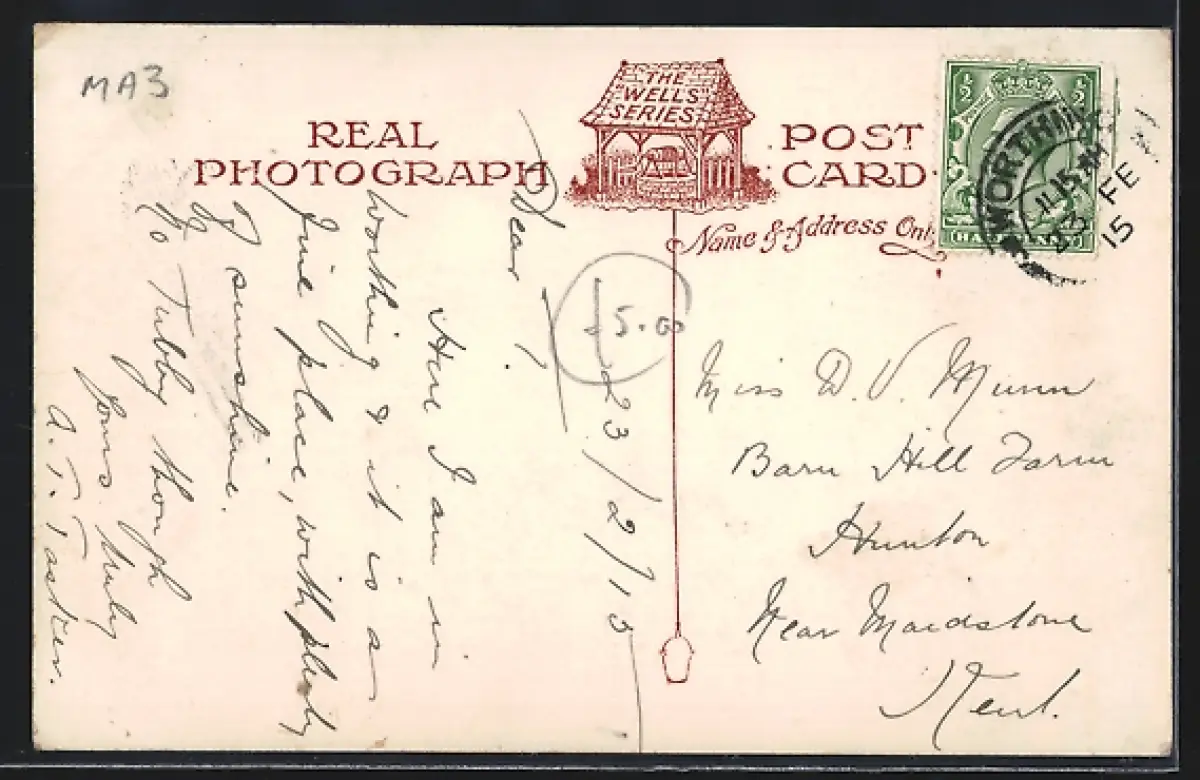 MA3
REAL
PHOTOGRAPH
THE
"WELLS"
SERIES
POST
CARD
Name & Address Only
½ ½
HALFPENNY
WORTHING
11.15 AM
23 FE
15
£5.00
23/2/15
Dear
Here I am in
Worthing & it is a
fine place, with plenty
of sunshine.
No Tubby though
Yours truly
A. T. Tasker.
Miss D. V. Munn
Barn Hill Farm
Hunton
Near Maidstone
Kent.